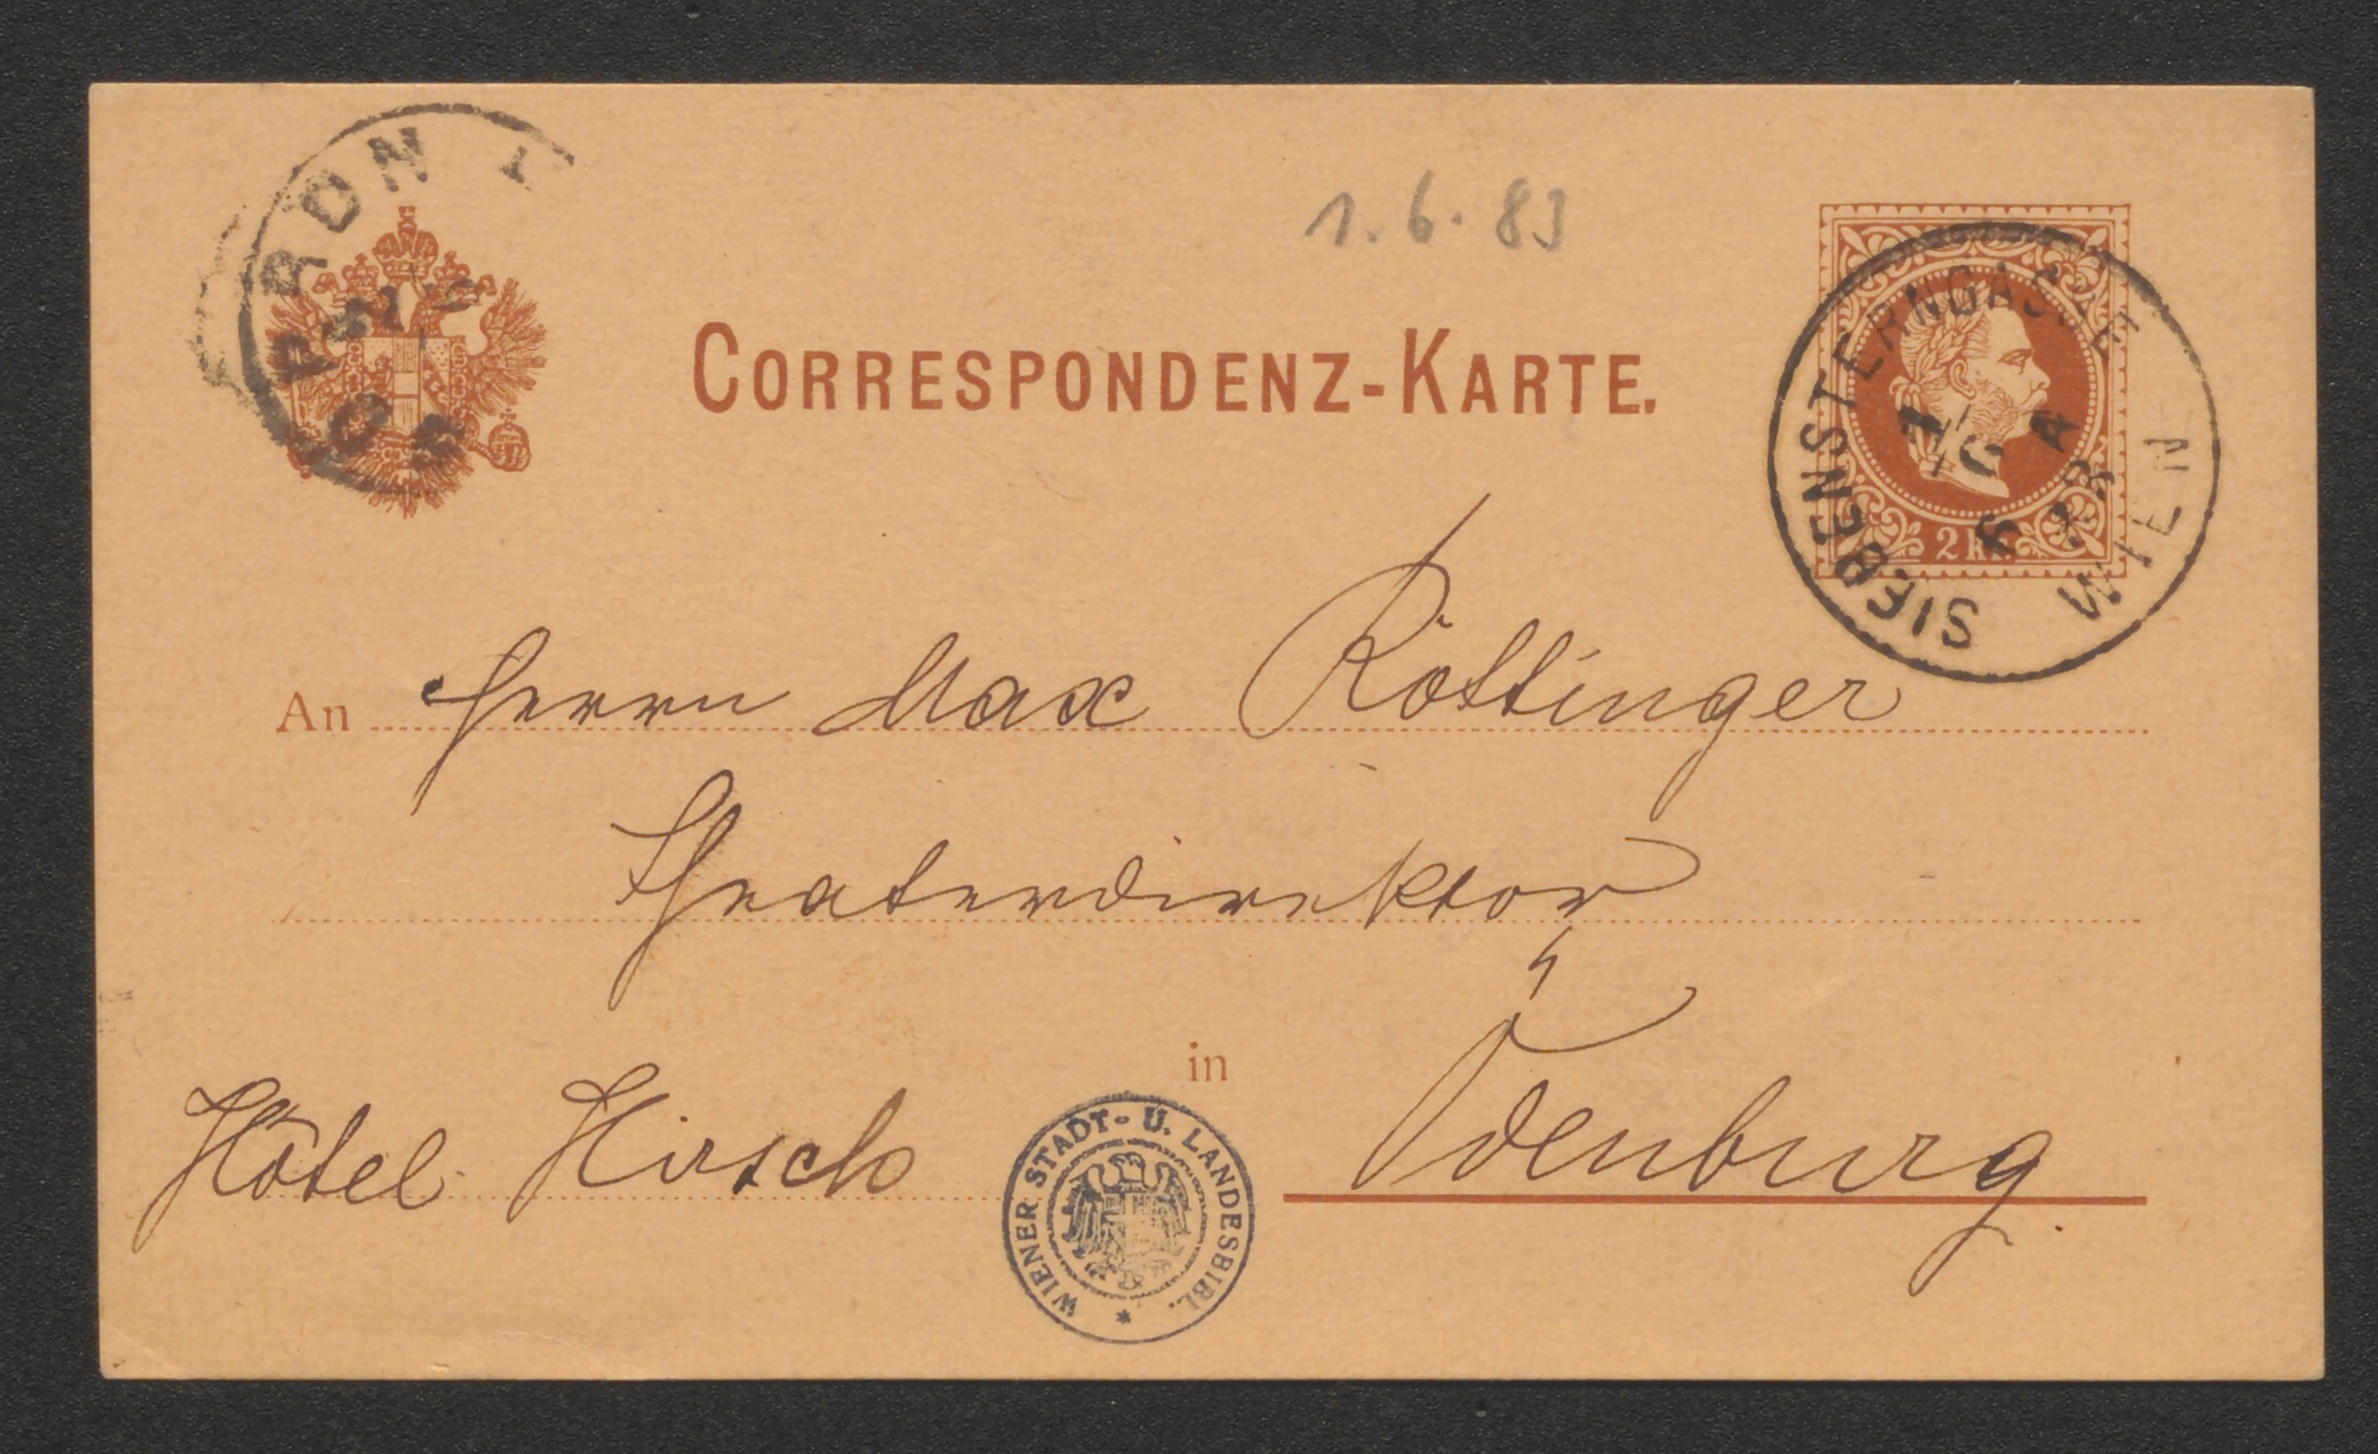 1. 6. 83
CORRESPONDENZ-KARTE.
2 Kr.
SIEBENSTERNGASSE WIEN
1/6
6 A
An Herrn Max Röttinger
Theaterdirektor
in
Hôtel Hirsch Ödenburg
WIENER STADT- U. LANDESBIBL.